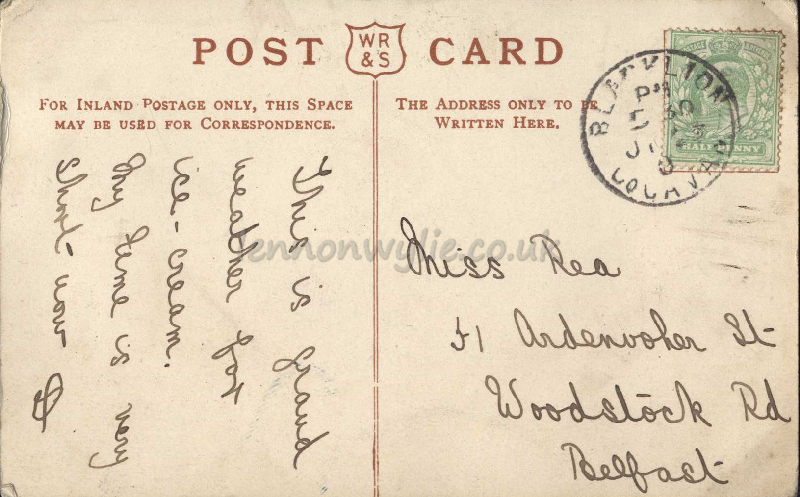 POST WR & S CARD
FOR INLAND POSTAGE ONLY, THIS SPACE
MAY BE USED FOR CORRESPONDENCE.
THE ADDRESS ONLY TO BE
WRITTEN HERE.
This is grand
weather for
ice-cream.
My time is very
short now
Miss Rea
51 Ardenvoher St
Woodstock Rd
Belfast
BLACKLION
PM
CO CAVAN
HALFPENNY
lennonwylie.co.uk